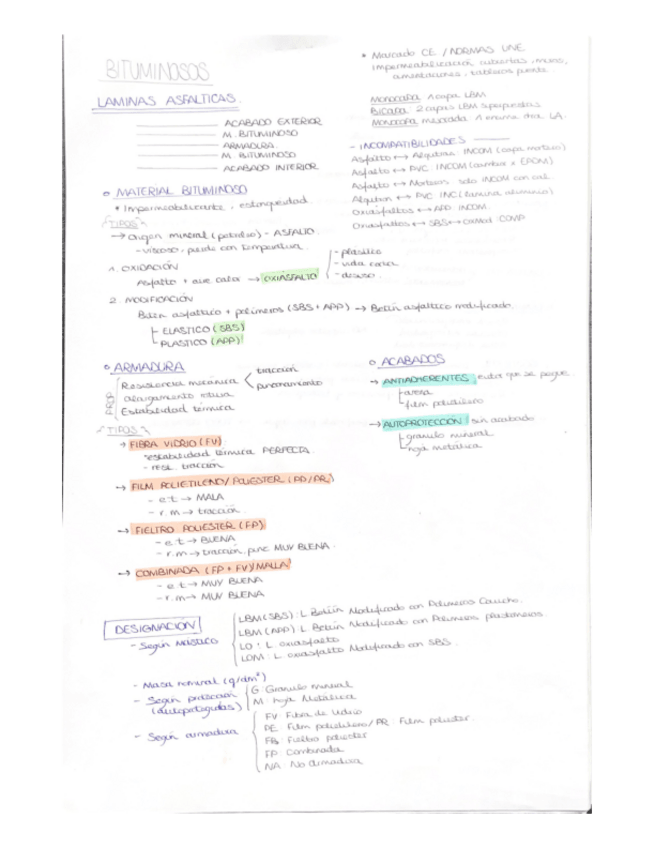 BITUMINOSOS
LAMINAS ASFALTICAS.
ACABADO EXTERIOR
M. BITUMINOSO
ARMADURA
M. BITUMINOSO
ACABADO INTERIOR
* Marcado CE / NORMAS UNE
impermeabilización cubiertas, muros,
cimentaciones, tableros puente.
Monocapa 1 capa LBM
Bicapa 2 capas LBM superpuestas
Monocapa mejorada 1 misma dos LA.
- INCOMPATIBILIDADES
Asfalto ↔ Alquitran INCOM (capa mortero)
Asfalto ↔ PVC INCOM (cambiar x EPDM)
Asfalto ↔ Morteros solo INCOM con cal.
Alquitran ↔ PVC INC (lamina aluminio)
Oxiasfaltos ↔ APP INCOM.
Oxiasfaltos ↔ SBS ↔ COMP
o MATERIAL BITUMINOSO
* Impermeabilizante, estanqueidad
TIPOS
→ Origen mineral (petroleo) - ASFALTO.
- viscoso, pierde con temperatura.
1. OXIDACIÓN
Asfalto + aire calor → OXIASFALTO
- plastico
- vida corta
- desuso.
2. MODIFICACIÓN
Betún asfaltico + polímeros (SBS + APP) → Betún asfaltico modificado.
ELASTICO (SBS)
PLASTICO (APP)
o ARMADURA
PROP
Resistencia mecánica
tracción
punzonamiento
alargamiento rotura
Estabilidad térmica
TIPOS
→ FIBRA VIDRIO (FV)
- estabilidad térmica PERFECTA.
- resi. tracción
→ FILM POLIETILENO/POLIESTER (PD/PR)
- e.t → MALA
- r.m → tracción.
→ FIELTRO POLIESTER (FP)
- e.t → BUENA
- r.m → tracción, punz MUY BUENA.
→ COMBINADA (FP + FV)/MALLA
- e.t → MUY BUENA
- r.m → MUY BUENA
o ACABADOS
→ ANTIADHERENTES: evitar que se pegue.
arena
film polietileno
→ AUTOPROTECCIÓN: sin acabado
granulo mineral
hoja metálica
DESIGNACIÓN
- Según Mástico
LBM (SBS): L Betún Modificado con Polimeros Caucho.
LBM (APP): L Betún Modificado con Polimeros plastomeros.
LO: L. oxiasfalto
LOM: L. oxiasfalto Modificado con SBS.
- Masa nominal (g/dm²)
- Según protección
(autoprotegidas)
G: Granulo mineral
M: Hoja Metálica
- Según armadura
FV: Fibra de Vidrio
PE: Film polietileno / PR: Film poliester.
FB: Fieltro poliester
FP: Combinada
NA: No Armadura